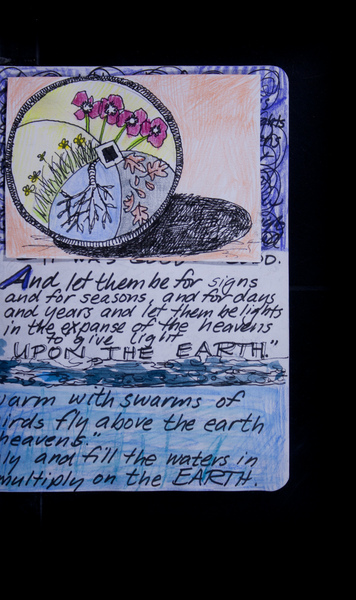 IT WAS GOOD
And let them be for signs
and for seasons, and for days
and years and let them be lights
in the expanse of the heavens
to give light
UPON THE EARTH."
warm with swarms of
irds fly above the earth
heavens."
ly and fill the waters in
multiply on the EARTH.